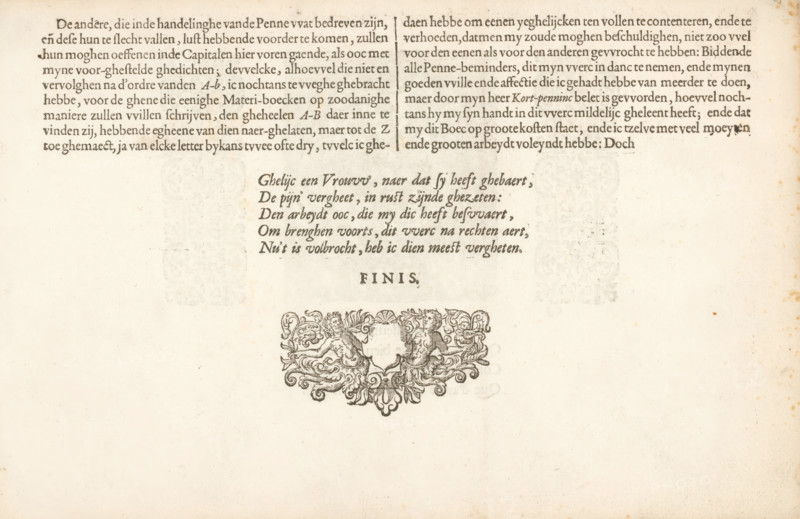 De andere, die inde handelinghe vande Penne vvat bedreven zijn,
eñ dese hun te slecht vallen, lust hebbende voorder te komen, zullen
hun moghen oeffenen inde Capitalen hier voren gaende, als ooc met
myne voor-ghestelde ghedichten; devvelcke, alhoevvel die niet en
vervolghen na d'ordre vanden A-b, ic nochtans te vveghe ghebracht
hebbe, voor de ghene die eenighe Materi-boecken op zoodanighe
maniere zullen vvillen schrijven, den gheheelen A-B daer inne te
vinden zij, hebbende egheene van dien naer-ghelaten, maer tot de Z
toe ghemaect, ja van elcke letter bykans tvvee ofte dry, tvvelc ic ghe-
daen hebbe om eenen yeghelijcken ten vollen te contenteren, ende te
verhoeden, datmen my zoude moghen beschuldighen, niet zoo vvel
voor den eenen als voor den anderen gevvrocht te hebben: Biddende
alle Penne-beminders, dit myn vverc in danc te nemen, ende mynen
goeden vville ende affectie die ic gehadt hebbe van meerder te doen,
maer door myn heer Kort-penninc belet is gevvorden, hoevvel noch-
tans hy my syn handt in dit vverc mildelijc gheleent heeft; ende dat
my dit Boec op groote kosten staet, ende ic tzelve met veel moeyten
ende grooten arbeydt voleyndt hebbe: Doch
Ghelijc een Vrouvv, naer dat sy heeft ghebaert,
De pijn vergheet, in rust zijnde ghezeten:
Den arbeydt ooc, die my dic heeft besvvaert,
Om brenghen voorts, dit vverc na rechten aert,
Nu't is volbrocht, heb ic dien meest vergheten.
FINIS.